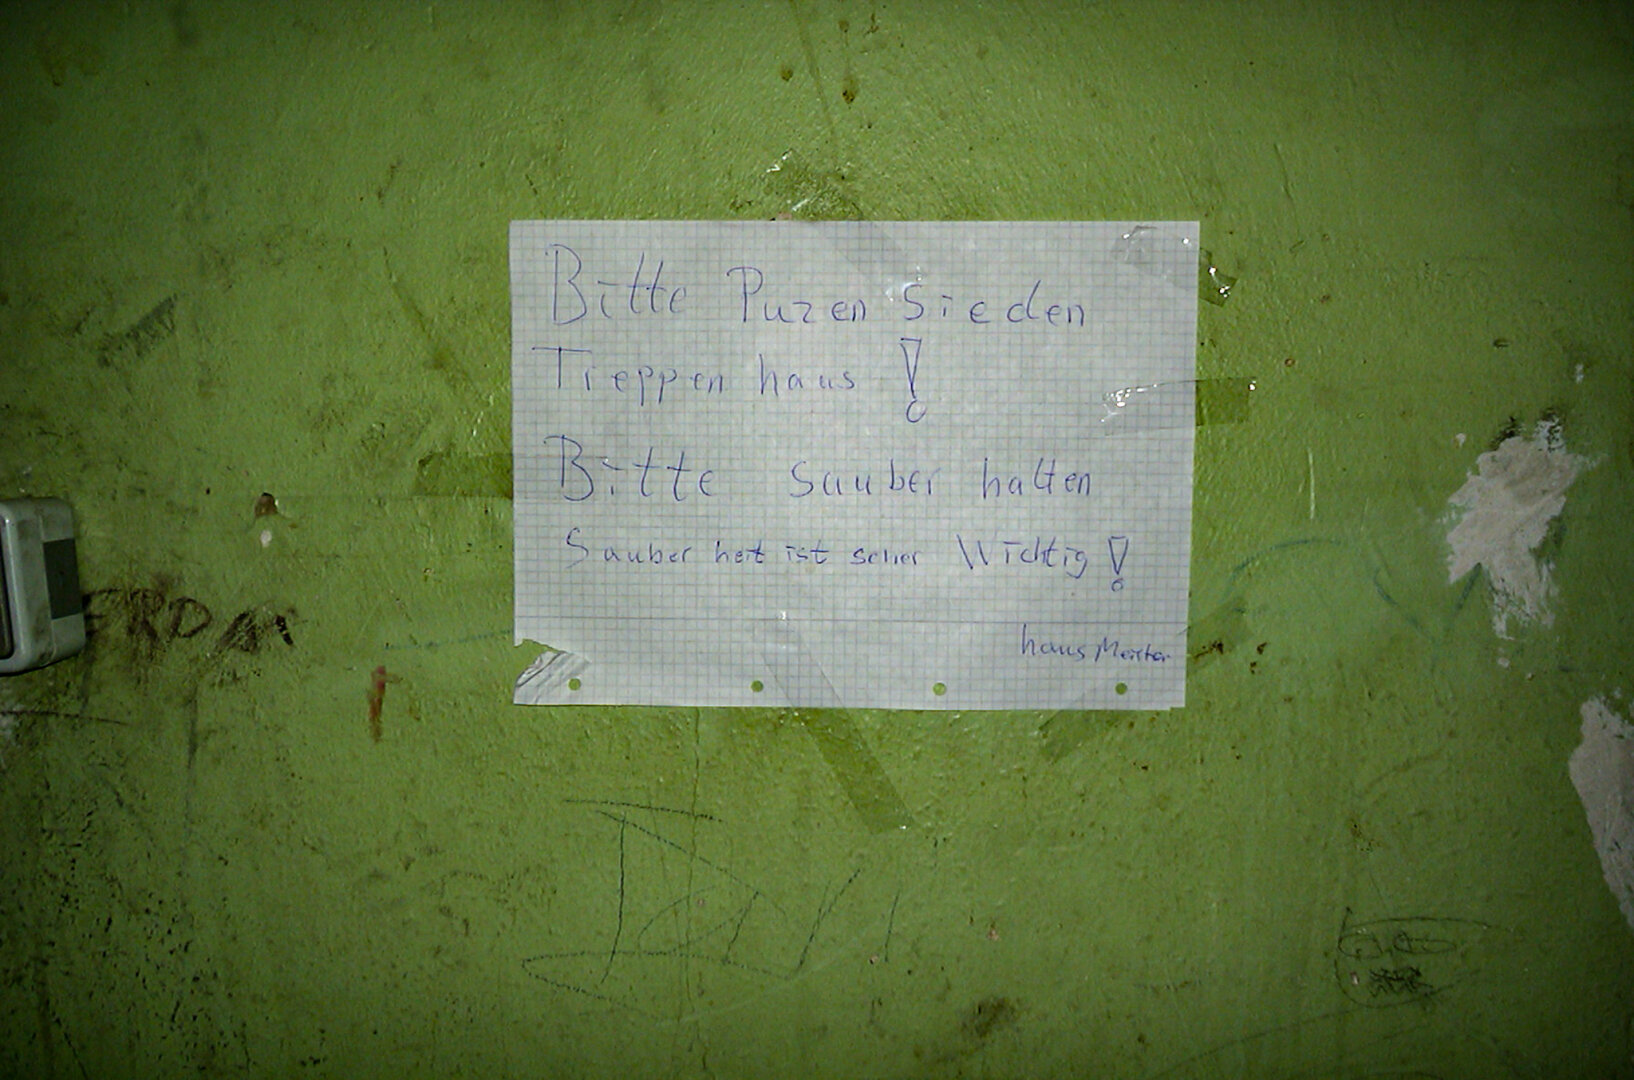 Bitte Puzen Sieden
Treppen haus !
Bitte sauber halten
Sauber heit ist seher Wichtig !
haus Meister